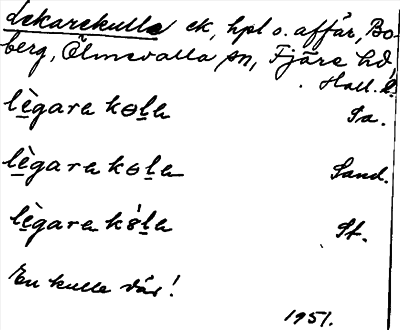 Lekarekulle ek, hpl o. affär, Bo-
berg, Ölmevalla sn, Fjäre hd,
Hall. l.
lègara kɵla Sa.
lègara kɵla Sand.
lègara k8́la St.
En kulle där!
1951.